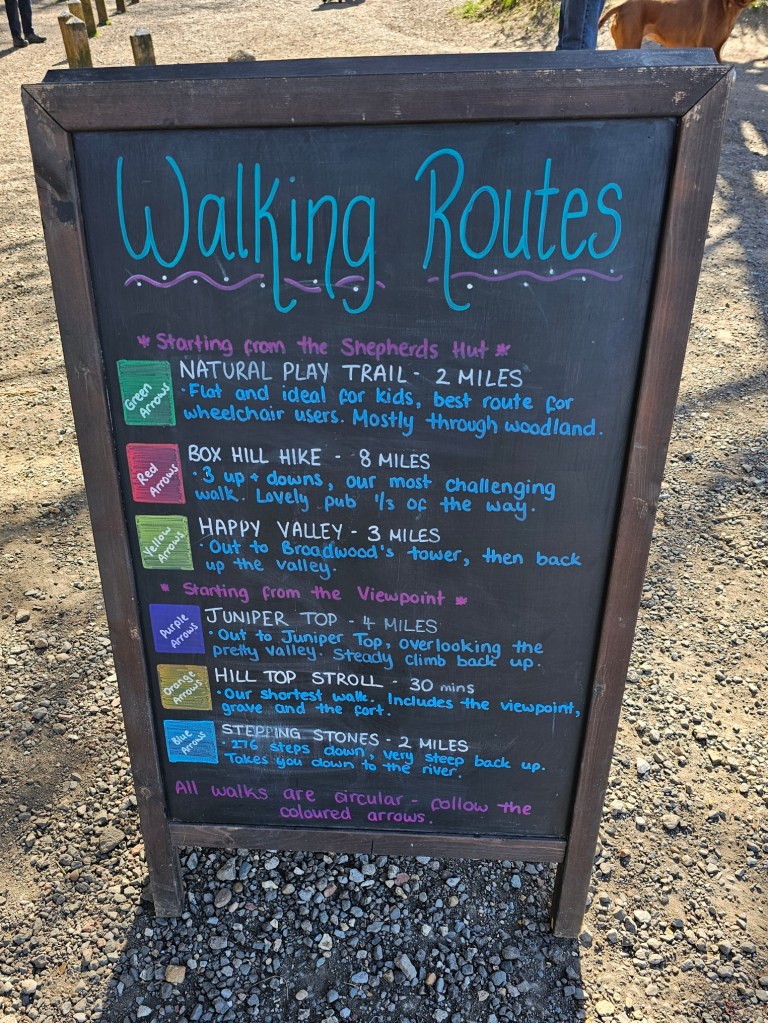 Walking Routes
* Starting from the Shepherds Hut *
Green
Arrows
NATURAL PLAY TRAIL - 2 MILES
· Flat and ideal for kids, best route for
wheelchair users. Mostly through woodland.
Red
Arrows
BOX HILL HIKE - 8 MILES
· 3 up + downs, our most challenging
walk. Lovely pub 1/3 of the way.
Yellow
Arrows
HAPPY VALLEY - 3 MILES
· Out to Broadwood's tower, then back
up the valley.
* Starting from the Viewpoint *
Purple
Arrows
JUNIPER TOP - 4 MILES
· Out to Juniper Top, overlooking the
pretty valley. Steady climb back up.
Orange
Arrows
HILL TOP STROLL - 30 mins
· Our shortest walk. Includes the viewpoint,
grave and the fort.
Blue
Arrows
STEPPING STONES - 2 MILES
· 276 steps down, very steep back up.
Takes you down to the river.
All walks are circular - follow the
coloured arrows.